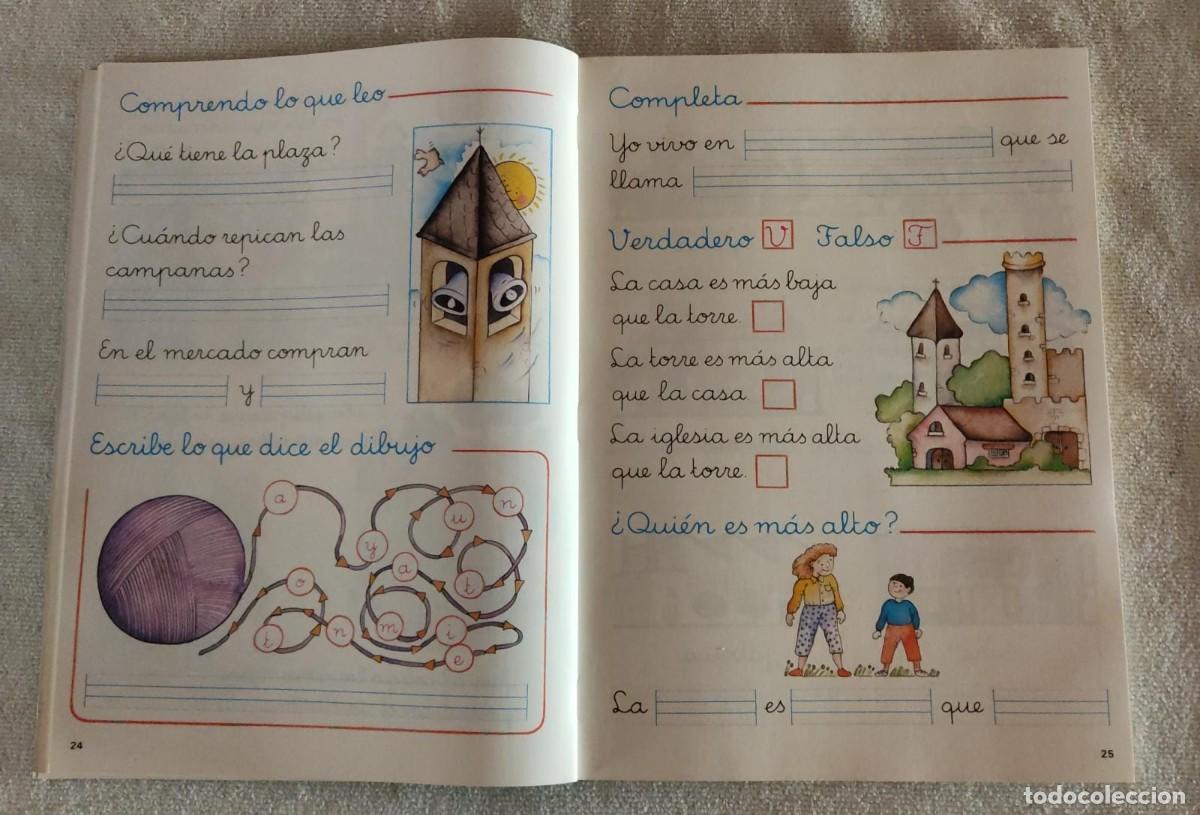 Comprendo lo que leo
¿Qué tiene la plaza?
¿Cuándo repican las
campanas?
En el mercado compran
y
Escribe lo que dice el dibujo
a
y
u
n
t
a
m
i
e
n
t
o
24
Completa
Yo vivo en que se
llama
Verdadero V Falso F
La casa es más baja
que la torre.
La torre es más alta
que la casa
La iglesia es más alta
que la torre.
¿Quién es más alto?
La es que
25
todocoleccion